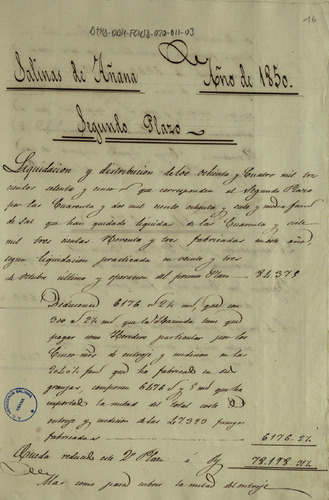 DTHA-004-FCU8-020-011-03
16
Salinas de Añana
Año de 1850.
Segundo Plazo
Liquidacion y distribucion de los ochenta y Cuatro mil tres
cientos setenta y cinco que corresponden al Segundo Plazo
por las Cuarenta y dos mil ciento ochenta y siete y media fan.s
de sal que han quedado liquidas de las Cuarenta y siete
mil tres cientas Noventa y tres fabricadas en este año,
segun liquidacion practicada en veinte y tres
de octubre ultimo y operacion del primer Plazo 84,375
Deducense 6176 r.s 2¼ que con
300 2¼ que la Hacienda tiene que
pagar como Heredero particular por los
Cinco mrs de entroje y medicion en las
fan.s que ha fabricado en sus
granjas, componen 6476 y que ha
importado la mitad del total coste
entroje y medicion de las 47.393 fanegas
fabricadas 6176. 2¼
Queda reducido este 2º Plazo á 78,198 31¾
Mas como para cubrir la mitad del entroje